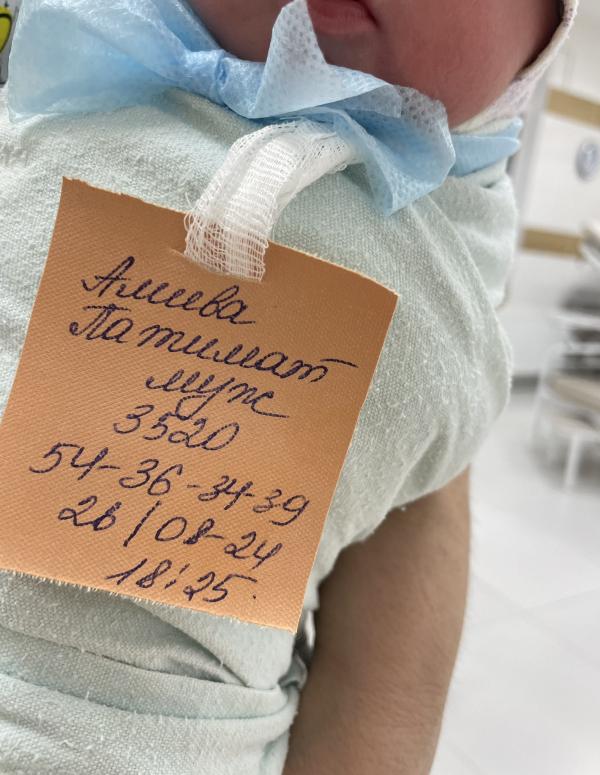 Алиева
Патимат
муж
3520
54-36-34-39
26/08-24
18:25.